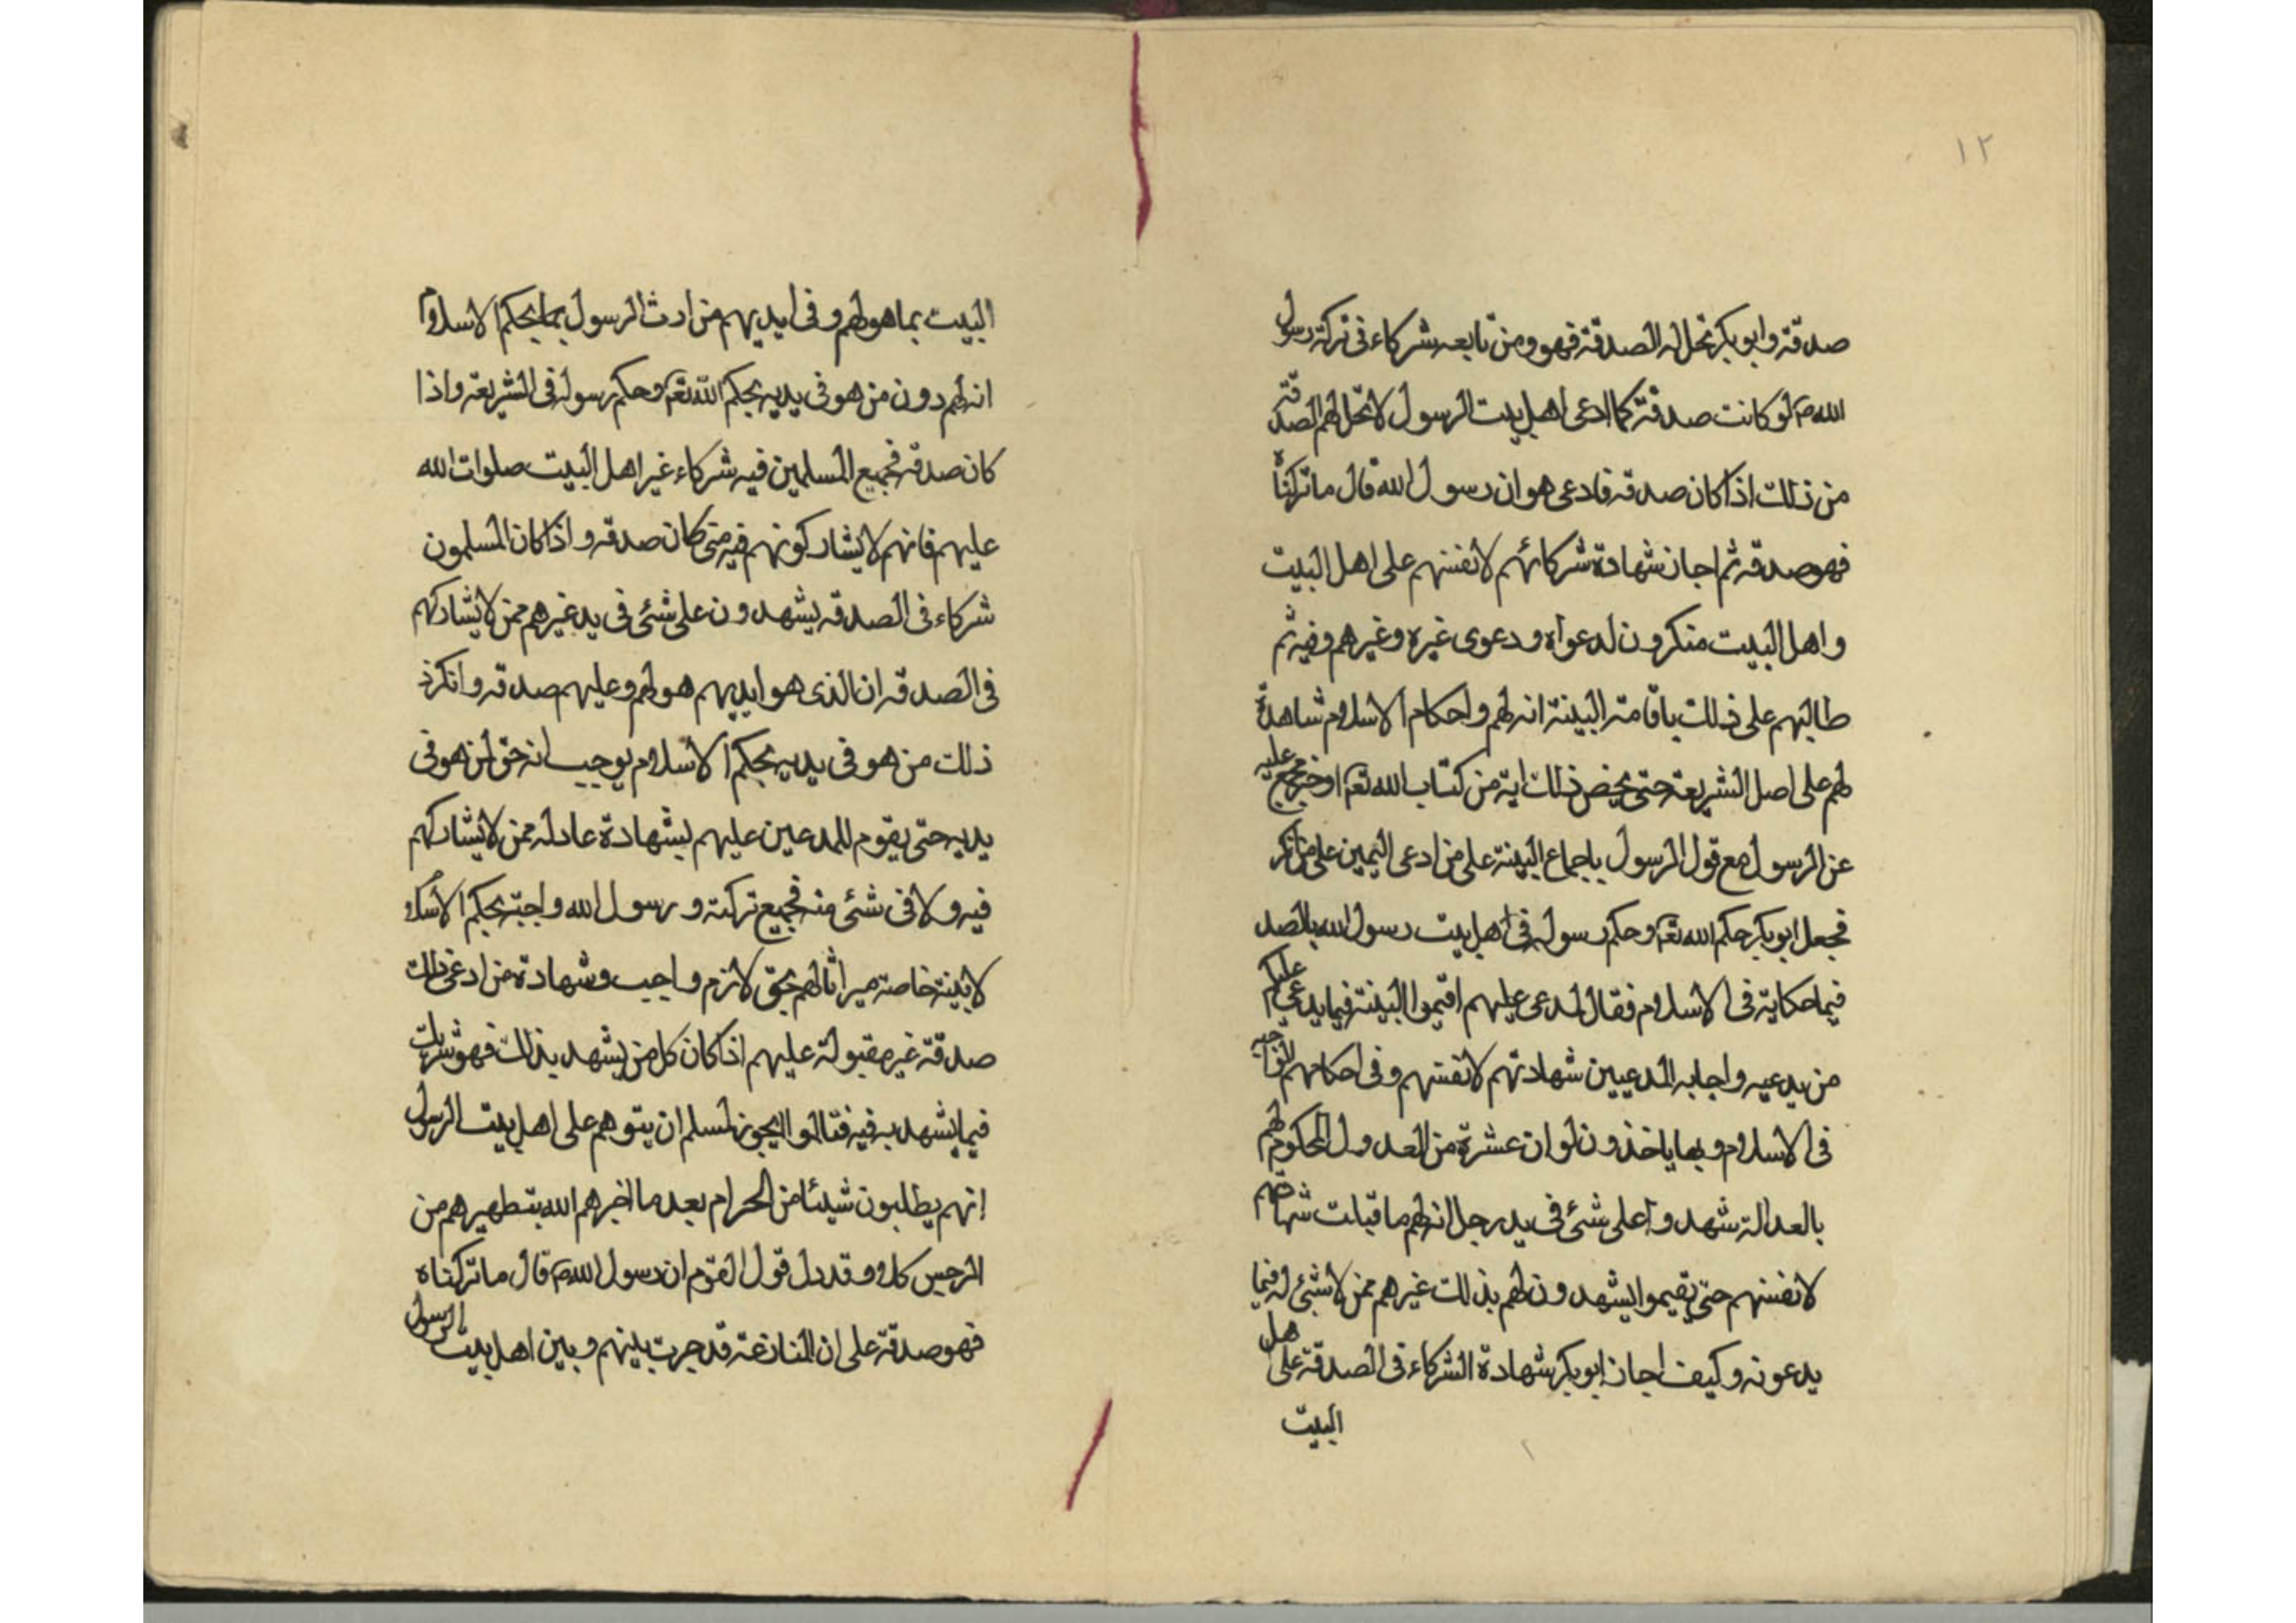 ١٢
صدقة وابوبكر تحل له الصدقة فهو ومن تابعه شركاء فى تركة رسول
الله ص لو كانت صدقة كما ادعى اهل بيت الرسول لا تحل لهم الصدقة
من ذلك اذا كان صدقه فادعى هو ان رسول الله قال ما تركناه
فهو صدقه ثم اجاز شهادة شركائهم لانفسهم على اهل البيت
واهل البيت منكرون لدعواه ودعوى غيره وغيرهم وفيه ثم
طالبهم على ذلك باقامة البينة انه لهم واحكام الاسلام شاهدة
لهم على اصل الشريعة حتى يخص ذلك اية من كتاب الله تعم او خبر مجمع عليه
عن الرسول مع قول الرسول باجماع البينة على من ادعى اليمين على من انكر
فجعل ابوبكر حكم الله تعم وحكم رسوله فى اهل بيت رسول الله بالضد
فيما حكاية فى الاسلام فقال لمدعى عليهم اقيموا البينة فيما يدعى عليكم
من يدعيه واجابه المدعيين شهادتهم لانفسهم وفى احكامهم
فى الاسلام وبها ياخذون لو ان عشرة من العدول المحكوم لهم
بالعدالة شهدوا على شئ فى يد رجل انه لهم ما قبلت شهادتهم
لانفسهم حتى يقيموا يشهدون لهم بذلك غيرهم ممن لا شئ له فيما
يدعونه وكيف اجاز ابوبكر شهادة الشركاء فى الصدقة على اهل
البيت
البيت بما هو لهم وفى ايديهم من ارث الرسول بما يحكم الاسلام
انه لهم دون من هو فى يديه بحكم الله تعم وحكم رسوله فى الشريعة واذا
كان صدقه فجميع المسلمين فيه شركاء غير اهل البيت صلوات الله
عليهم فانهم لا يشاركونهم فيه متى كان صدقه واذا كان المسلمون
شركاء فى الصدقه يشهدون على شئ فى يد غيرهم ممن لا يشاركهم
فى الصدقه ان الذى هو ايديهم هو لهم وعليهم صدقه وانكر
ذلك من هو فى يديه بحكم الاسلام يوجب انه حق لمن هو فى
يديه حتى يقوم للمدعين عليهم بشهادة عادله ممن لا يشاركهم
فيه ولا فى شئ منه فجميع تركته و رسول الله واجبة بحكم الاسلام
لابنته خاصة ميراثا لهم بحق لازم واجب وشهادة من ادعى ذلك
صدقة غير مقبولة عليهم اذا كان كل من يشهد بذلك فهو شريك
فيما يشهد به فيه فتالوا ايجوز لمسلم ان يتوهم على اهل بيت الرسول
انهم يطلبون شيئا من الحرام بعد ما اخبرهم الله بتطهيرهم من
الرجس كلا وقد دل قول القوم ان رسول الله ص قال ما تركناه
فهو صدقة على ان المنازعة قد جرت بينهم وبين اهل بيت الرسول